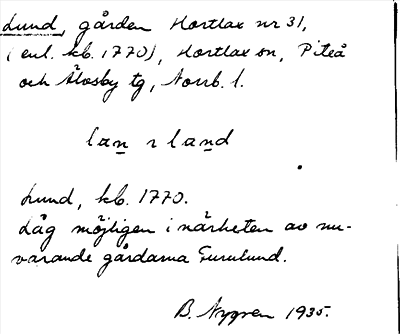 Lund, gården Hortlax nr 31,
(enl. kb. 1770), Hortlax sn, Piteå
och Älvsby tg, Norrb. l.
lan ɿ land
Lund, kb. 1770.
Låg möjligen i närheten av nu-
varande gårdarna Furulund.
B. Nygren 1935.